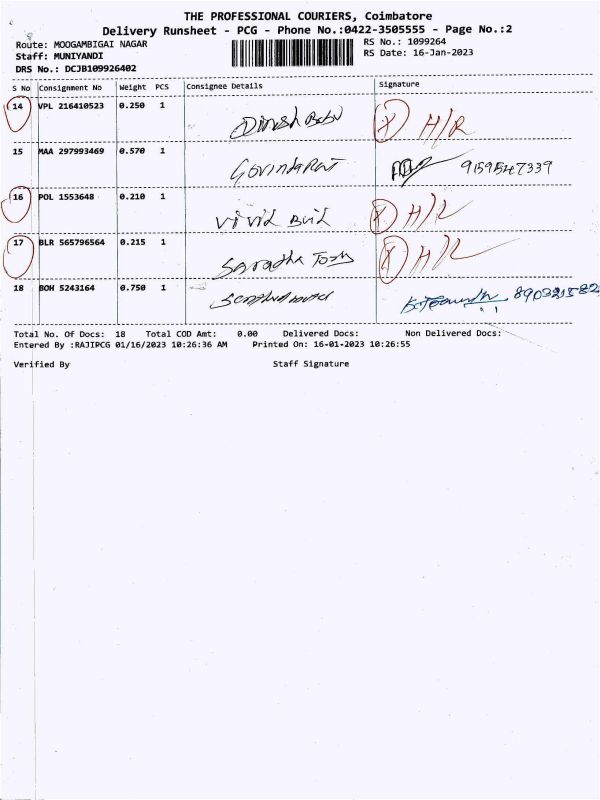 THE PROFESSIONAL COURIERS, Coimbatore
Delivery Runsheet - PCG - Phone No.:0422-3505555 - Page No.:2
Route: MOOGAMBIGAI NAGAR RS No.: 1099264
Staff: MUNIYANDI RS Date: 16-Jan-2023
DRS No.: DCJB109926402
S No Consignment No Weight PCS Consignee Details Signature
14 VPL 216410523 0.250 1 Dinesh Babu X H/R
15 MAA 297993469 0.570 1 Govindaraj
16 POL 1553648 0.210 1 Vivid Buil X H/L
17 BLR 565796564 0.215 1 Saradha X H/L
18 BOH 5243164 0.750 1
Total No. Of Docs: 18 Total COD Amt: 0.00 Delivered Docs: Non Delivered Docs:
Entered By :RAJIPCG 01/16/2023 10:26:36 AM Printed On: 16-01-2023 10:26:55
Verified By Staff Signature